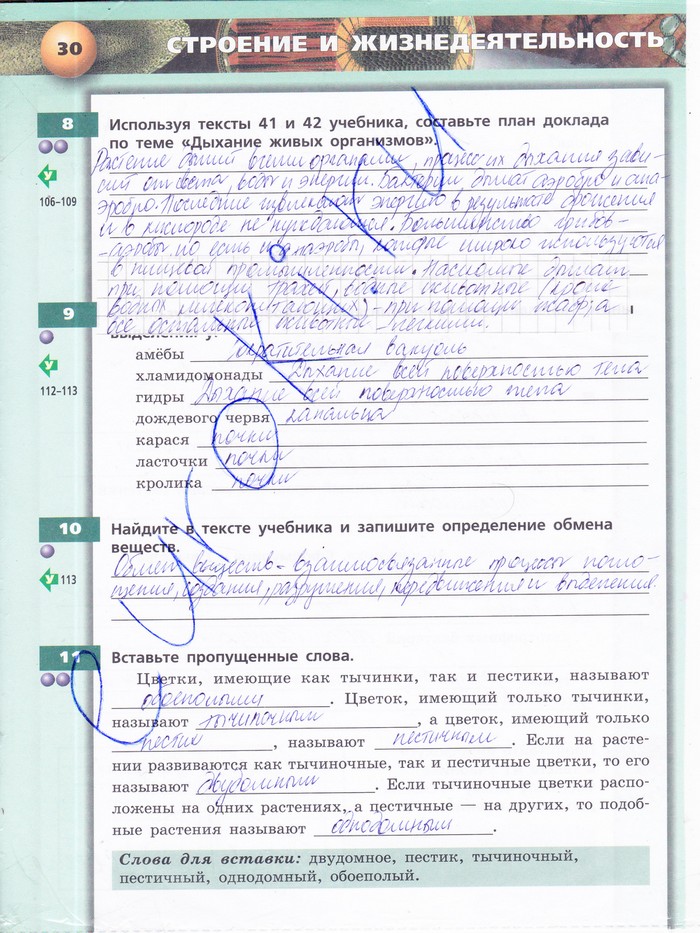 30
СТРОЕНИЕ И ЖИЗНЕДЕЯТЕЛЬНОСТЬ
8
Используя тексты 41 и 42 учебника, составьте план доклада
по теме «Дыхание живых организмов».
У
106–109
Растение дышит всеми органами, процесс их дыхания зави-
сит от света, воды и энергии. Бактерии дышат аэробно и ана-
эробно. Последние извлекают энергию в результате брожения
и в кислороде не нуждаются. Большинство грибов-
-аэробы, но есть и анаэробы, которые широко используются
в пищевой промышленности. Насекомые дышат
при помощи трахей, водные животные (кроме
водных млекопитающих) - при помощи жабр, а
все остальные животные - легкими.
9
У
112–113
амёбы сократительная вакуоль
хламидомонады Дыхание всей поверхностью тела
гидры Дыхание всей поверхностью тела
дождевого червя
карася почки
ласточки почки
кролика почки
10
Найдите в тексте учебника и запишите определение обмена
веществ.
У
113
Обмен веществ - взаимосвязанные процессы погло-
щения, создания, разрушения, передвижения и выделения
11
Вставьте пропущенные слова.
Цветки, имеющие как тычинки, так и пестики, называют
обоеполыми. Цветок, имеющий только тычинки,
называют тычиночным, а цветок, имеющий только
пестик, называют пестичным. Если на расте-
нии развиваются как тычиночные, так и пестичные цветки, то его
называют двудомным. Если тычиночные цветки распо-
ложены на одних растениях, а пестичные — на других, то подоб-
ные растения называют однодомным.
Слова для вставки: двудомное, пестик, тычиночный,
пестичный, однодомный, обоеполый.